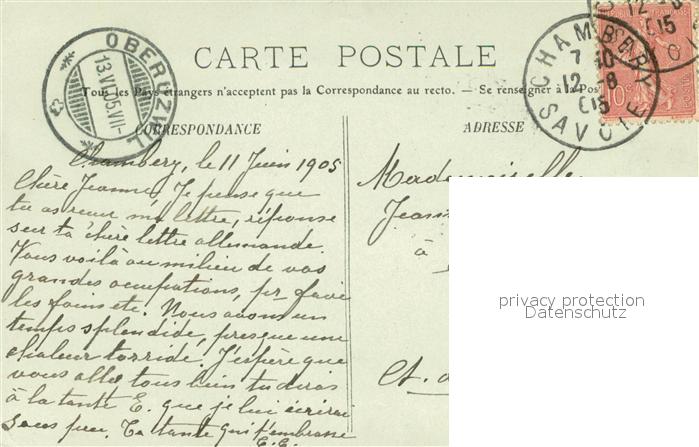 CARTE POSTALE
Tous les Pays étrangers n'acceptent pas la Correspondance au recto. — Se renseigner à la Pos
CORRESPONDANCE
ADRESSE
OBERUZWIL
13.VI.05.VII-
CHAMBERY
7 40
12 - 6
05
SAVOIE
10c
Chambery, le 11 Juin 1905
Chère Jeanne, Je pense que
tu as reçu ma lettre, réponse
sur ta chère lettre allemande.
Vous voilà au milieu de vos
grandes occupations, pr
les foins etc. Nous avons un
temps splendide, presque une
chaleur torride. J'espère que
vous allez tous bien tu diras
à la tante E. que je lui écrirai
sous peu. Ta tante qui t'embrasse
E.E.
Mademoiselle
Jean
à
Ct. d
privacy protection
Datenschutz